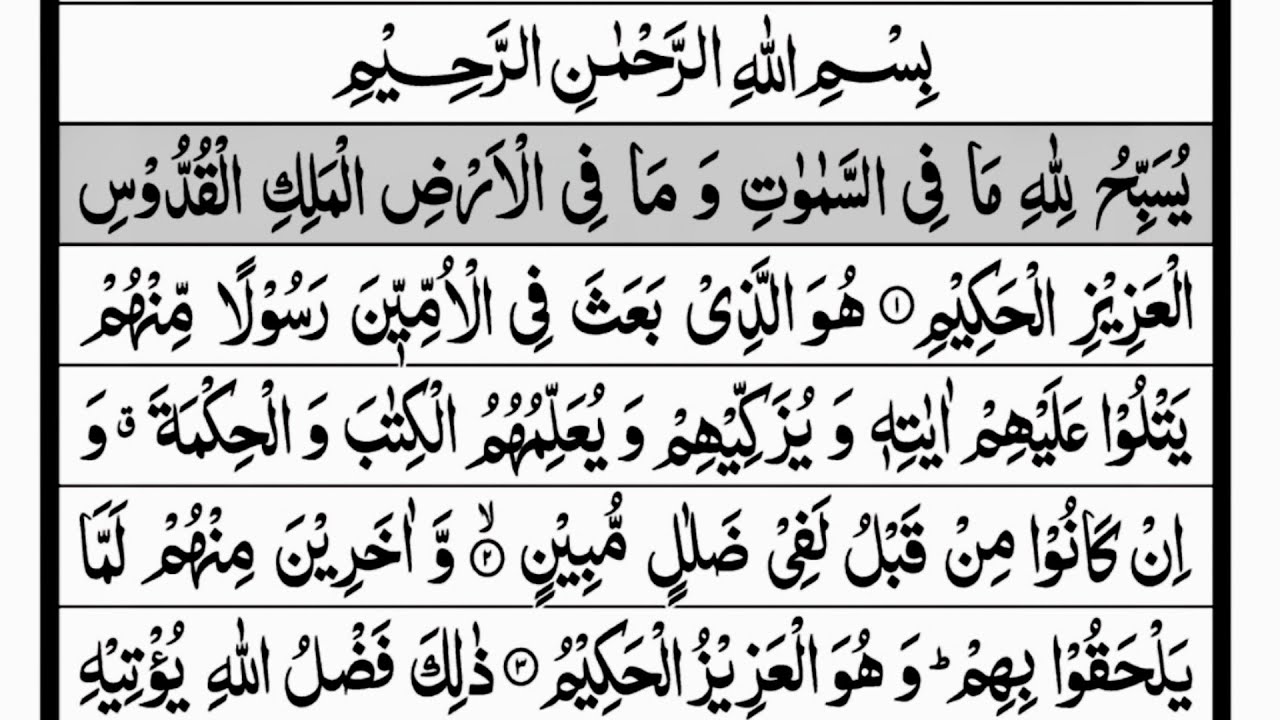 بِسْمِ اللهِ الرَّحْمٰنِ الرَّحِيْمِ
يُسَبِّحُ لِلّٰهِ مَا فِي السَّمٰوٰتِ وَ مَا فِي الْاَرْضِ الْمَلِكِ الْقُدُّوْسِ
الْعَزِيْزِ الْحَكِيْمِ ۝۱ هُوَ الَّذِيْ بَعَثَ فِي الْاُمِّيّٖنَ رَسُوْلًا مِّنْهُمْ
يَتْلُوْا عَلَيْهِمْ اٰيٰتِهٖ وَ يُزَكِّيْهِمْ وَ يُعَلِّمُهُمُ الْكِتٰبَ وَ الْحِكْمَةَ ۗ وَ
اِنْ كَانُوْا مِنْ قَبْلُ لَفِيْ ضَلٰلٍ مُّبِيْنٍ ۙ۝۲ وَّ اٰخَرِيْنَ مِنْهُمْ لَمَّا
يَلْحَقُوْا بِهِمْ ؕ وَ هُوَ الْعَزِيْزُ الْحَكِيْمُ ۝۳ ذٰلِكَ فَضْلُ اللهِ يُؤْتِيْهِ